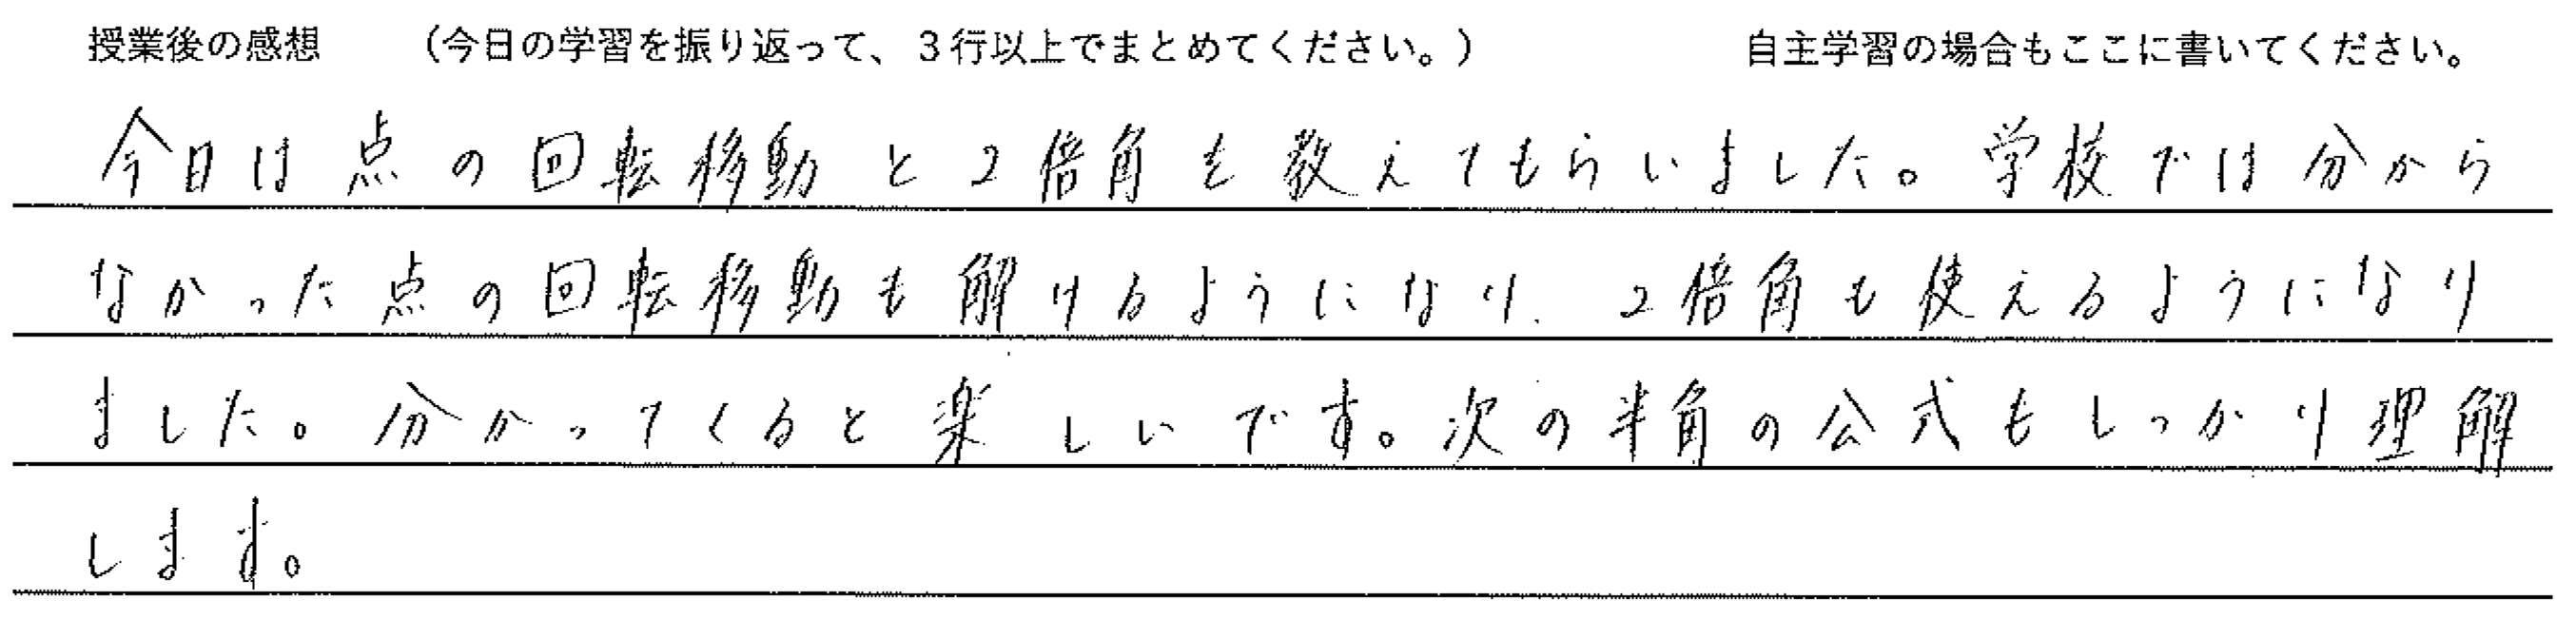 授業後の感想 （今日の学習を振り返って、３行以上でまとめてください。） 自主学習の場合もここに書いてください。
今日は点の回転移動と2倍角を教えてもらいました。学校では分から
なかった点の回転移動も解けるようになり、2倍角も使えるようになり
ました。分かってくると楽しいです。次の半角の公式もしっかり理解
します。